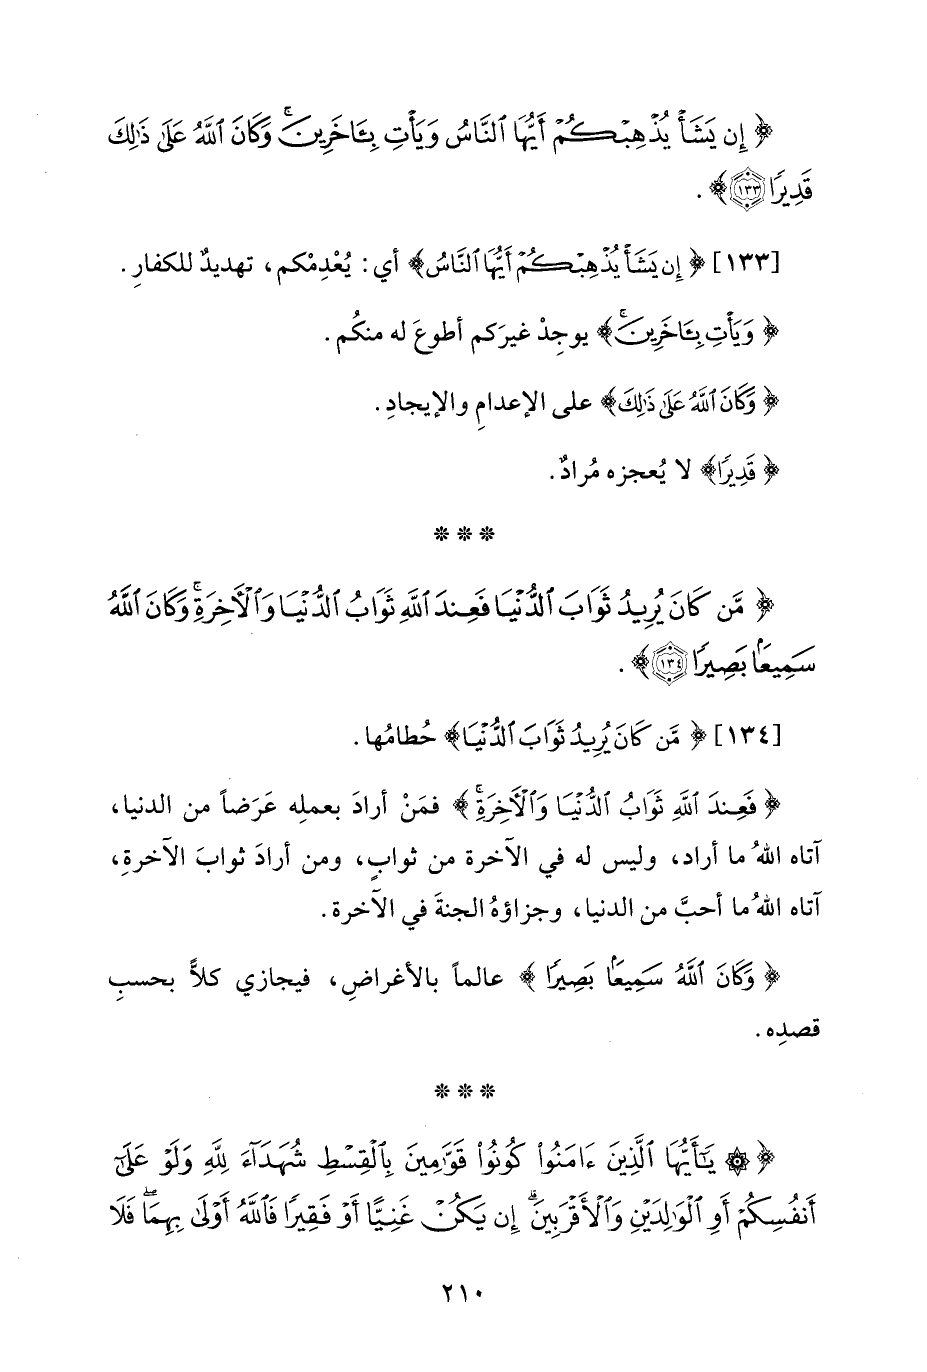 ﴿ إِن يَشَأْ يُذْهِبْكُمْ أَيُّهَا ٱلنَّاسُ وَيَأْتِ بِـَٔاخَرِينَ ۚ وَكَانَ ٱللَّهُ عَلَىٰ ذَٰلِكَ
قَدِيرًا ١٣٣﴾ .
[١٣٣] ﴿ إِن يَشَأْ يُذْهِبْكُمْ أَيُّهَا ٱلنَّاسُ﴾ أي: يُعْدِمْكم، تهديدٌ للكفارِ.
﴿ وَيَأْتِ بِـَٔاخَرِينَ ۚ﴾ يوجِدْ غيرَكم أطوعَ له منكُم.
﴿ وَكَانَ ٱللَّهُ عَلَىٰ ذَٰلِكَ﴾ على الإعدامِ والإيجادِ.
﴿ قَدِيرًا﴾ لا يُعجزه مُرادٌ.
* * *
﴿ مَّن كَانَ يُرِيدُ ثَوَابَ ٱلدُّنْيَا فَعِندَ ٱللَّهِ ثَوَابُ ٱلدُّنْيَا وَٱلْأَخِرَةِ ۚ وَكَانَ ٱللَّهُ
سَمِيعًۢا بَصِيرًا ١٣٤﴾ .
[١٣٤] ﴿ مَّن كَانَ يُرِيدُ ثَوَابَ ٱلدُّنْيَا﴾ حُطامُها.
﴿ فَعِندَ ٱللَّهِ ثَوَابُ ٱلدُّنْيَا وَٱلْأَخِرَةِ ۚ ﴾ فمَنْ أرادَ بعملِه عَرَضاً من الدنيا،
آتاه اللهُ ما أراد، وليس له في الآخرة من ثوابٍ، ومن أرادَ ثوابَ الآخرةِ،
آتاه اللهُ ما أحبَّ من الدنيا، وجزاؤهُ الجنةَ في الآخرة.
﴿ وَكَانَ ٱللَّهُ سَمِيعًۢا بَصِيرًا ﴾ عالماً بالأغراضِ، فيجازي كلاًّ بحسبِ
قصدِه.
* * *
﴿ ۞ يَـٰٓأَيُّهَا ٱلَّذِينَ ءَامَنُوا۟ كُونُوا۟ قَوَّٰمِينَ بِٱلْقِسْطِ شُهَدَآءَ لِلَّهِ وَلَوْ عَلَىٰٓ
أَنفُسِكُمْ أَوِ ٱلْوَٰلِدَيْنِ وَٱلْأَقْرَبِينَ ۚ إِن يَكُنْ غَنِيًّا أَوْ فَقِيرًا فَٱللَّهُ أَوْلَىٰ بِهِمَا ۖ فَلَا
٢١٠